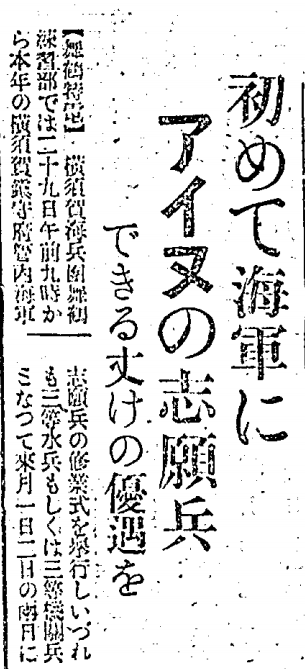 初めて海軍に
アイヌの志願兵
できる丈けの優遇を
【舞鶴特電】橫須賀海兵團舞
練習部では二十九日午前九時か
ら本年の橫須賀鎭守府管內海軍
志願兵の修業式を舉行しいづれ
も三等水兵もしくは三等機關兵
ミなつて來月一日二日の兩日に